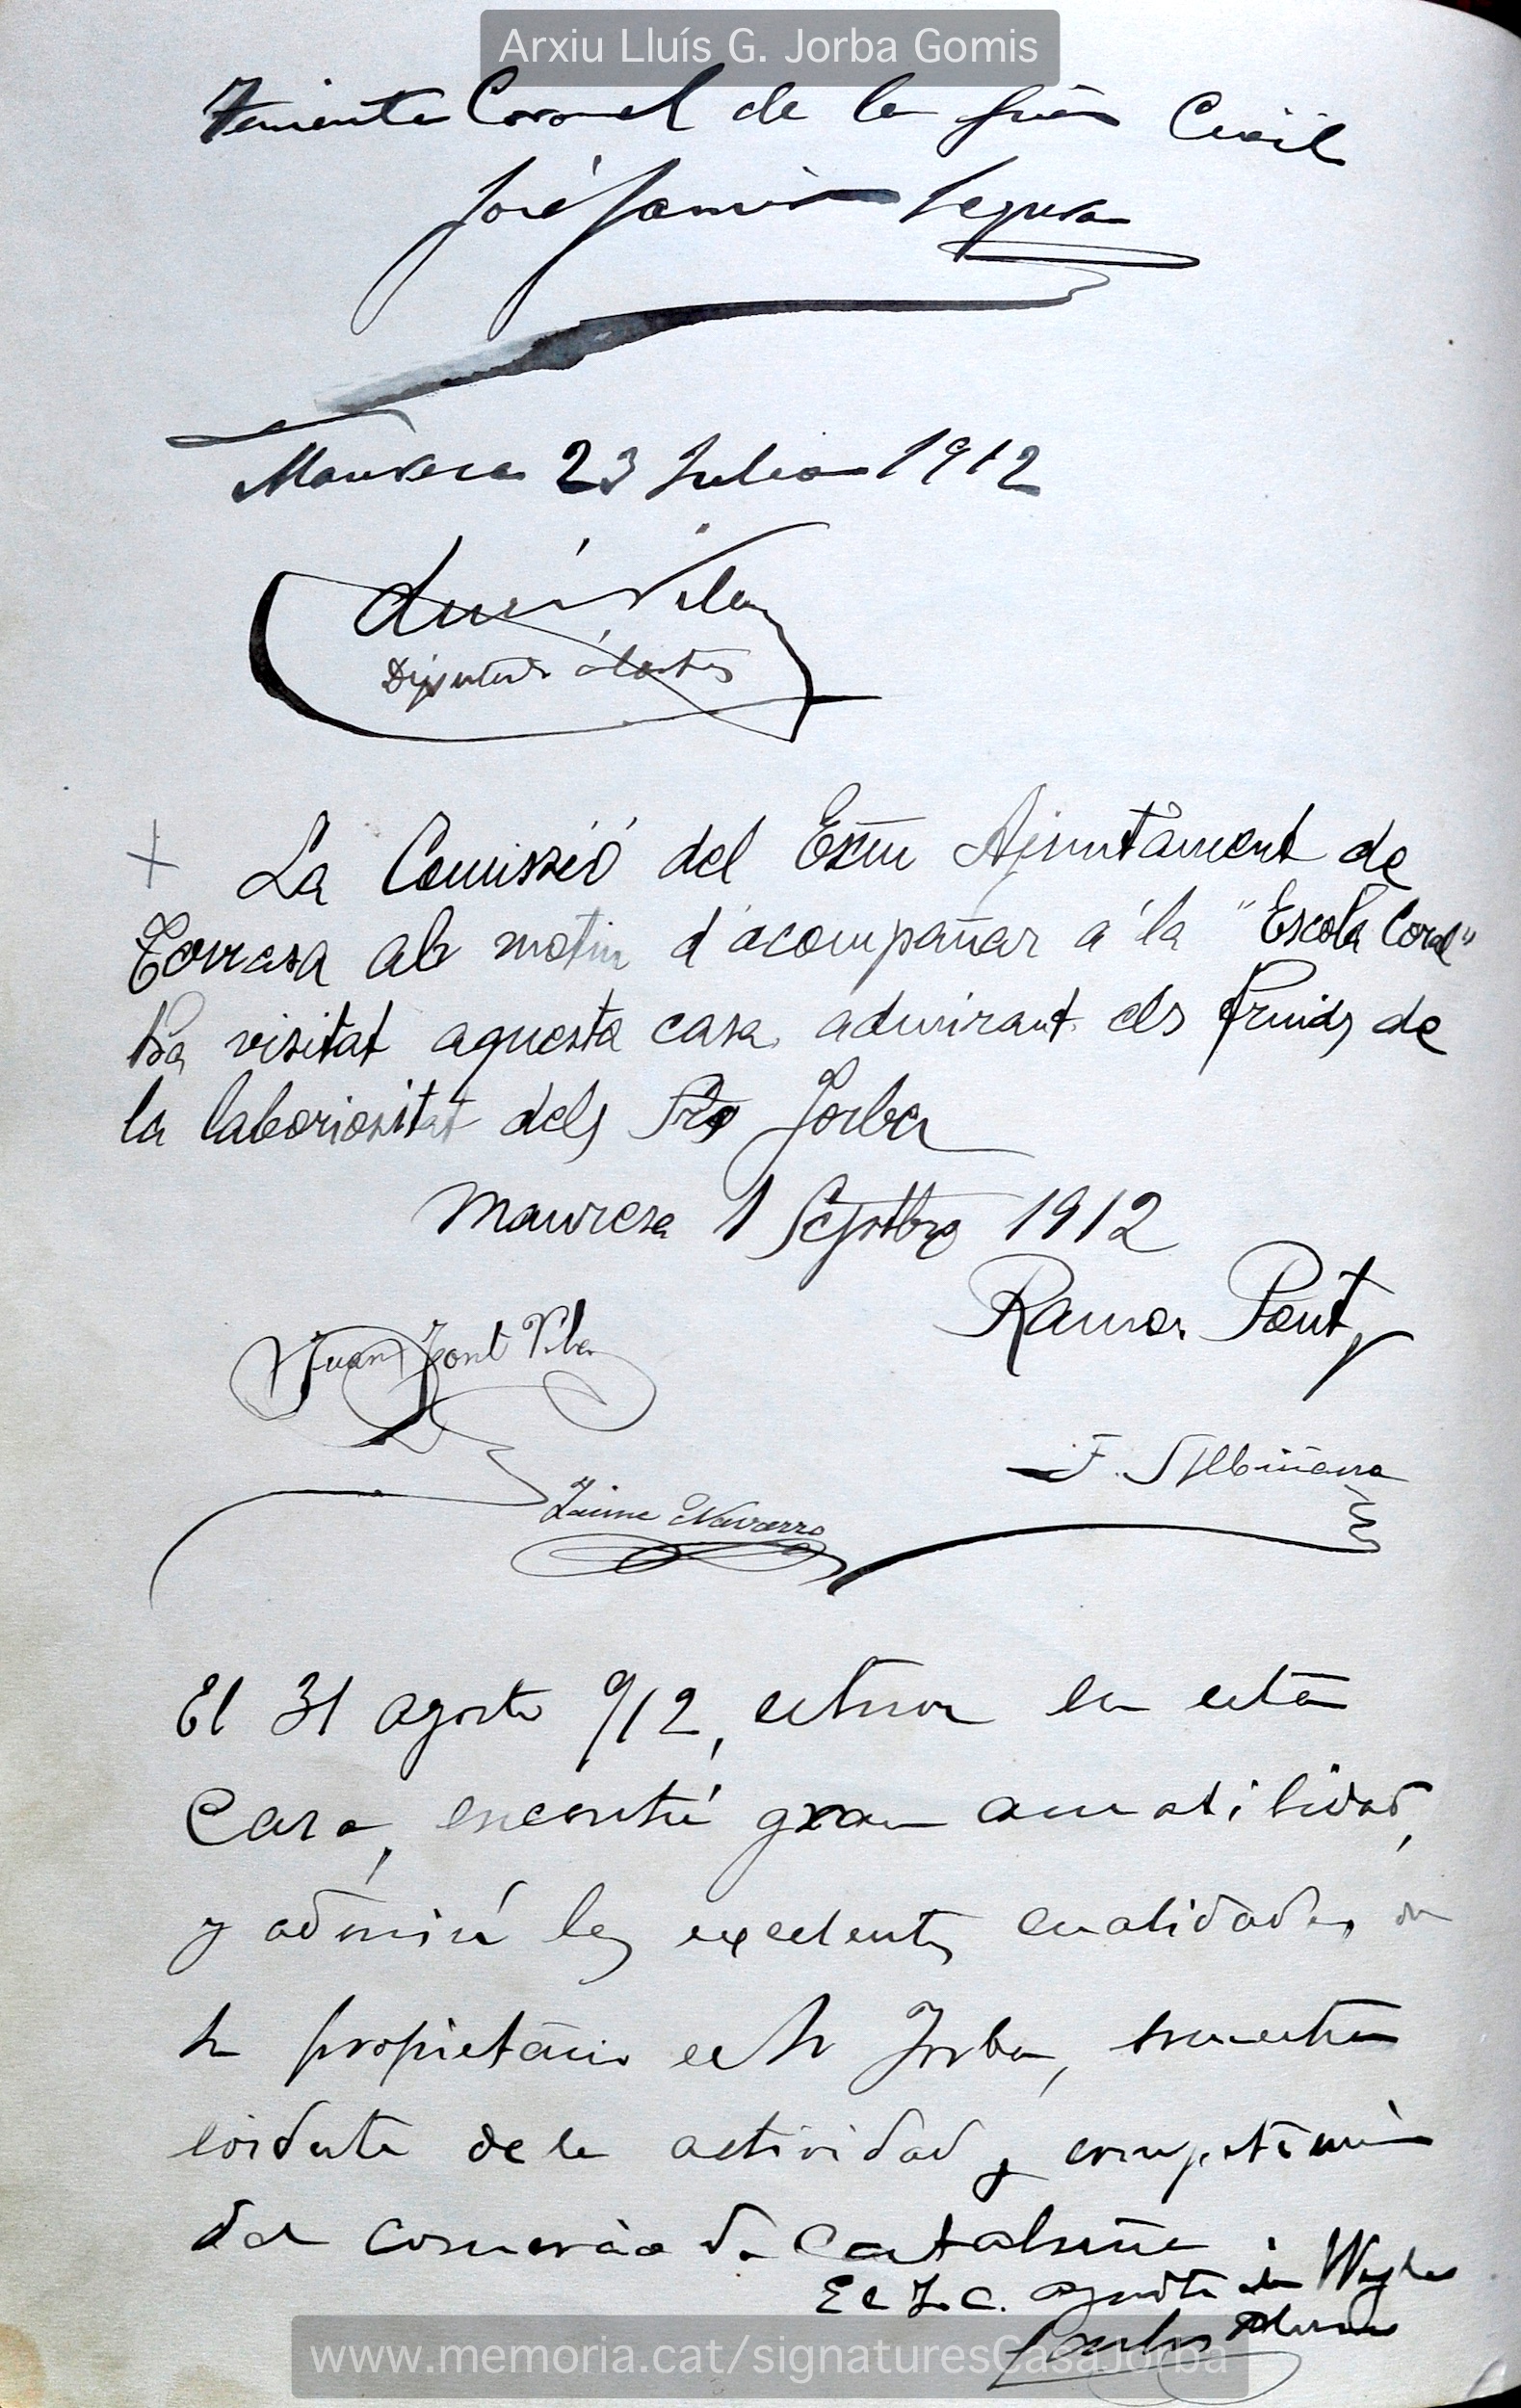 Arxiu Lluís G. Jorba Gomis
Teniente Coronel de la Civil
José Segura
Manresa 23 Julio 1912
Vila
Diputado á Cortes
La Comissió del Exm Ajuntament de
Terrasa ab motiu d'acompañar á la "Escola Coral"
ha visitat aquesta casa admirant els fruids de
la laboriositat dels Srs Jorba
Manresa 1 Septbre 1912
Ramon Pont
Juan Font Vila
F. Albiñana
Jaime Navarro
El 31 agosto 912, estuve en esta
Casa, encontré gran amabilidad,
y admiré las excelentes cualidades de
su propietario el Sr Jorba, muestra
de la actividad y
del comercio de Cataluña
El T. C.
Carlos
www.memoria.cat/signaturesCasaJorba